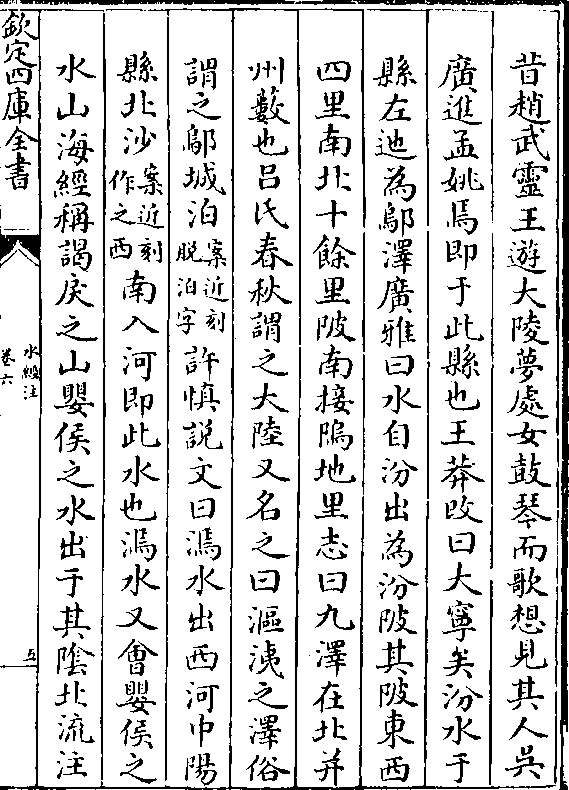 昔趙武靈王遊大陵夢處女鼓琴而歌想見其人吳
廣進孟姚焉即于此縣也王莽改曰大寧矣汾水于
縣左迆為鄔澤廣雅曰水自汾出為汾陂其陂東西
四里南北十餘里陂南接鄔地里志曰九澤在北并
州藪也吕氏春秋謂之大陸又名之曰漚洟之澤俗
謂之鄔城泊案近刻脱泊字許慎説文曰漹水出西河中陽
縣北沙案近刻作之西南入河即此水也漹水又會嬰侯之
水山海經稱謁戾之山嬰侯之水出于其隂北流注
欽定四庫全書
水經注
卷六
五